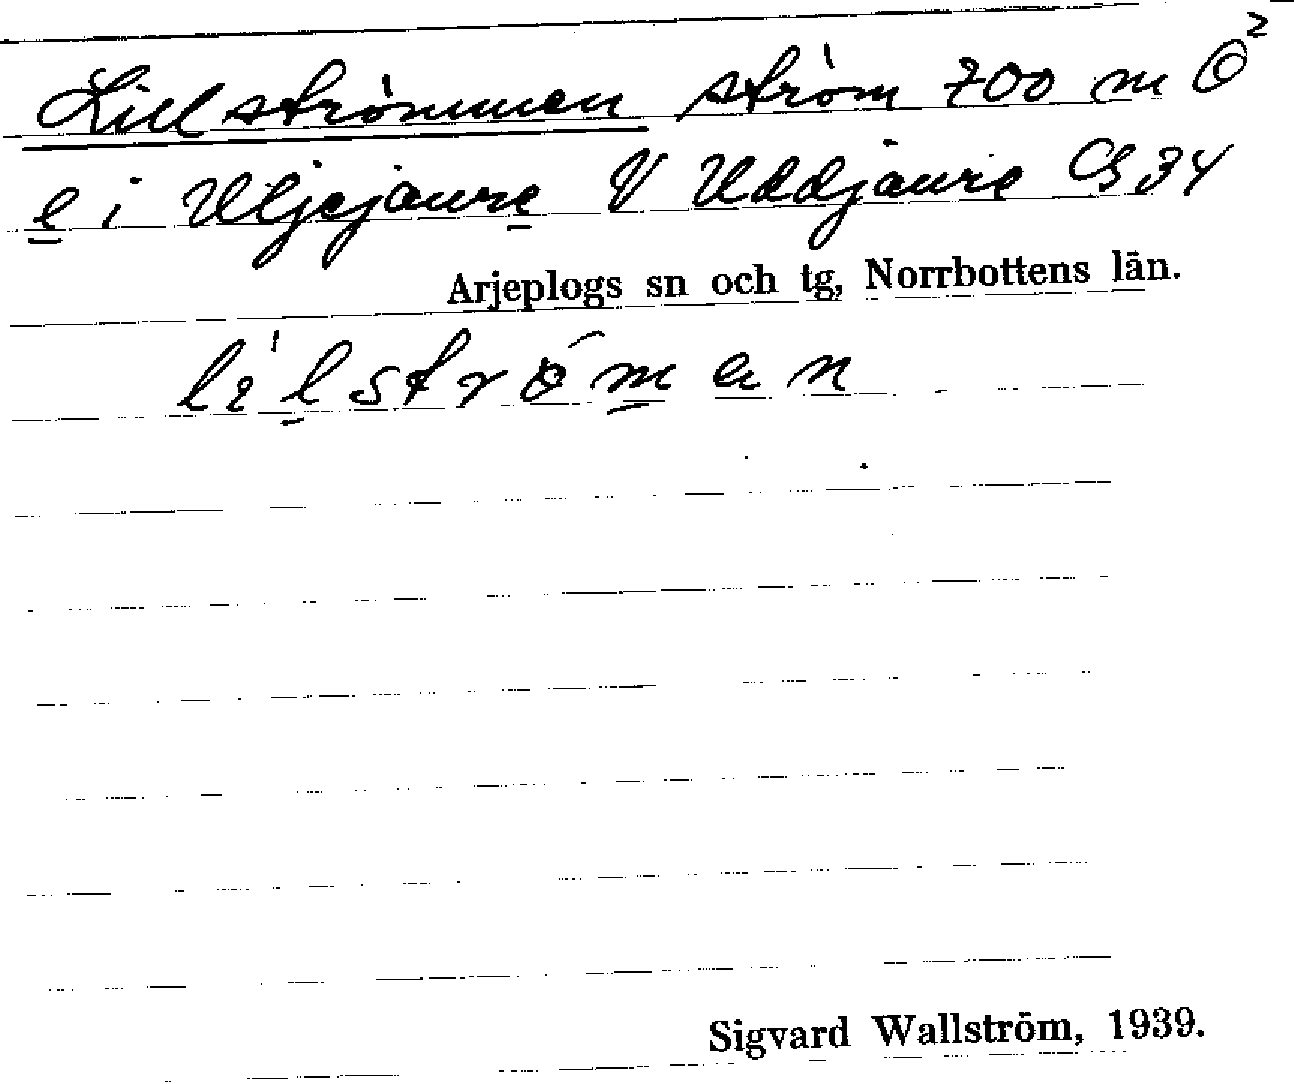 Lillströmmen ström 700 m ©²
e i Uljejaure V Uddjaure G34
Arjeplogs sn och tg, Norrbottens län.
lilström en
Sigvard Wallström, 1939.